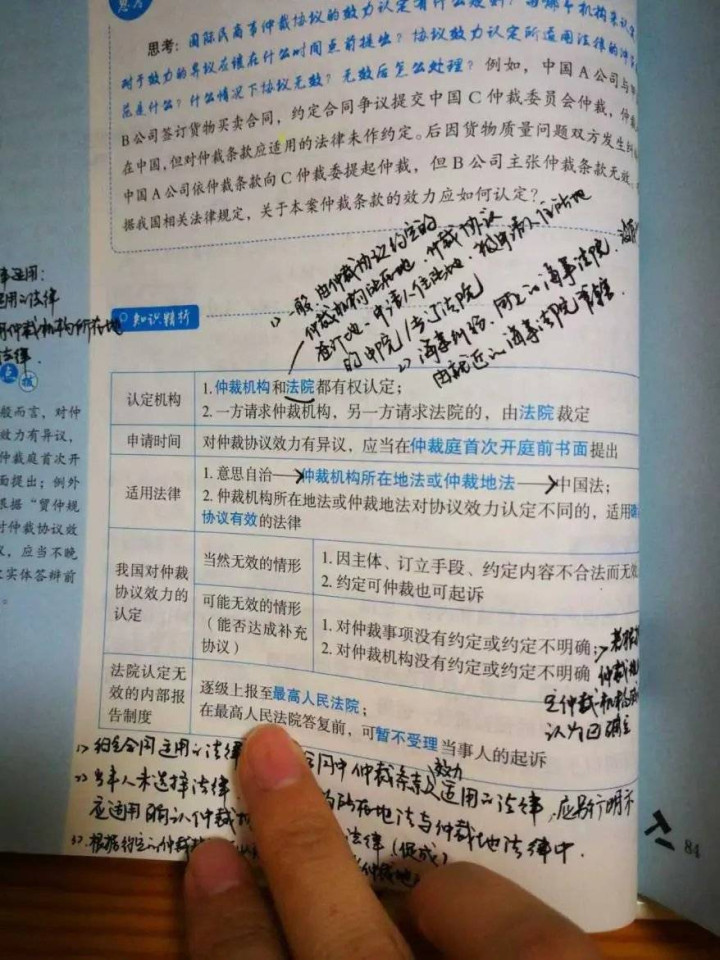 思考
思考：国际民商事仲裁协议的效力认定有什么规则？由哪个机构来认定
对于效力的异议应该在什么时间点前提出？协议效力认定所适用法律的冲突规
范是什么？什么情况下协议无效？无效后怎么处理？例如，中国A公司与
B公司签订货物买卖合同，约定合同争议提交中国C仲裁委员会仲裁，仲裁
在中国，但对仲裁条款应适用的法律未作约定。后因货物质量问题双方发生纠
中国A公司依仲裁条款向C仲裁委提起仲裁，但B公司主张仲裁条款无效。
据我国相关法律规定，关于本案仲裁条款的效力应如何认定？
1> 一般由仲裁协议约定的
仲裁机构所在地、仲裁协议
签订地、申请人住所地、被申请人住所地
的中院/专门法院
2> 海事纠纷，同上的海事法院
由就近的海事法院管辖.
知识精析
事适用：
适用的法律
用仲裁机构所在地
法律.
点拨
般而言，对仲
效力有异议，
仲裁庭首次开
面提出；例外
根据“贸仲规
对仲裁协议效
议，应当不晚
次实体答辩前
。
认定机构
1. 仲裁机构和法院都有权认定；
2. 一方请求仲裁机构，另一方请求法院的，由法院裁定
申请时间
对仲裁协议效力有异议，应当在仲裁庭首次开庭前书面提出
适用法律
1. 意思自治→仲裁机构所在地法或仲裁地法→中国法；
2. 仲裁机构所在地法或仲裁地法对协议效力认定不同的，适用确
协议有效的法律
我国对仲裁
协议效力的
认定
当然无效的情形
1. 因主体、订立手段、约定内容不合法而无效
2. 约定可仲裁也可起诉
可能无效的情形
（能否达成补充
协议）
1. 对仲裁事项没有约定或约定不明确；
2. 对仲裁机构没有约定或约定不明确
仲裁
定仲裁机构的
认为已确定
法院认定无
效的内部报
告制度
逐级上报至最高人民法院；
在最高人民法院答复前，可暂不受理当事人的起诉
1> 约定合同适用的法律 合同中仲裁条款效力适用的法律，应另行明示
2> 当事人未选择法律 所在地法与仲裁地法律中.
应适用确认仲裁
3> 根据约定的仲裁 法律（促成）
仲裁地
84